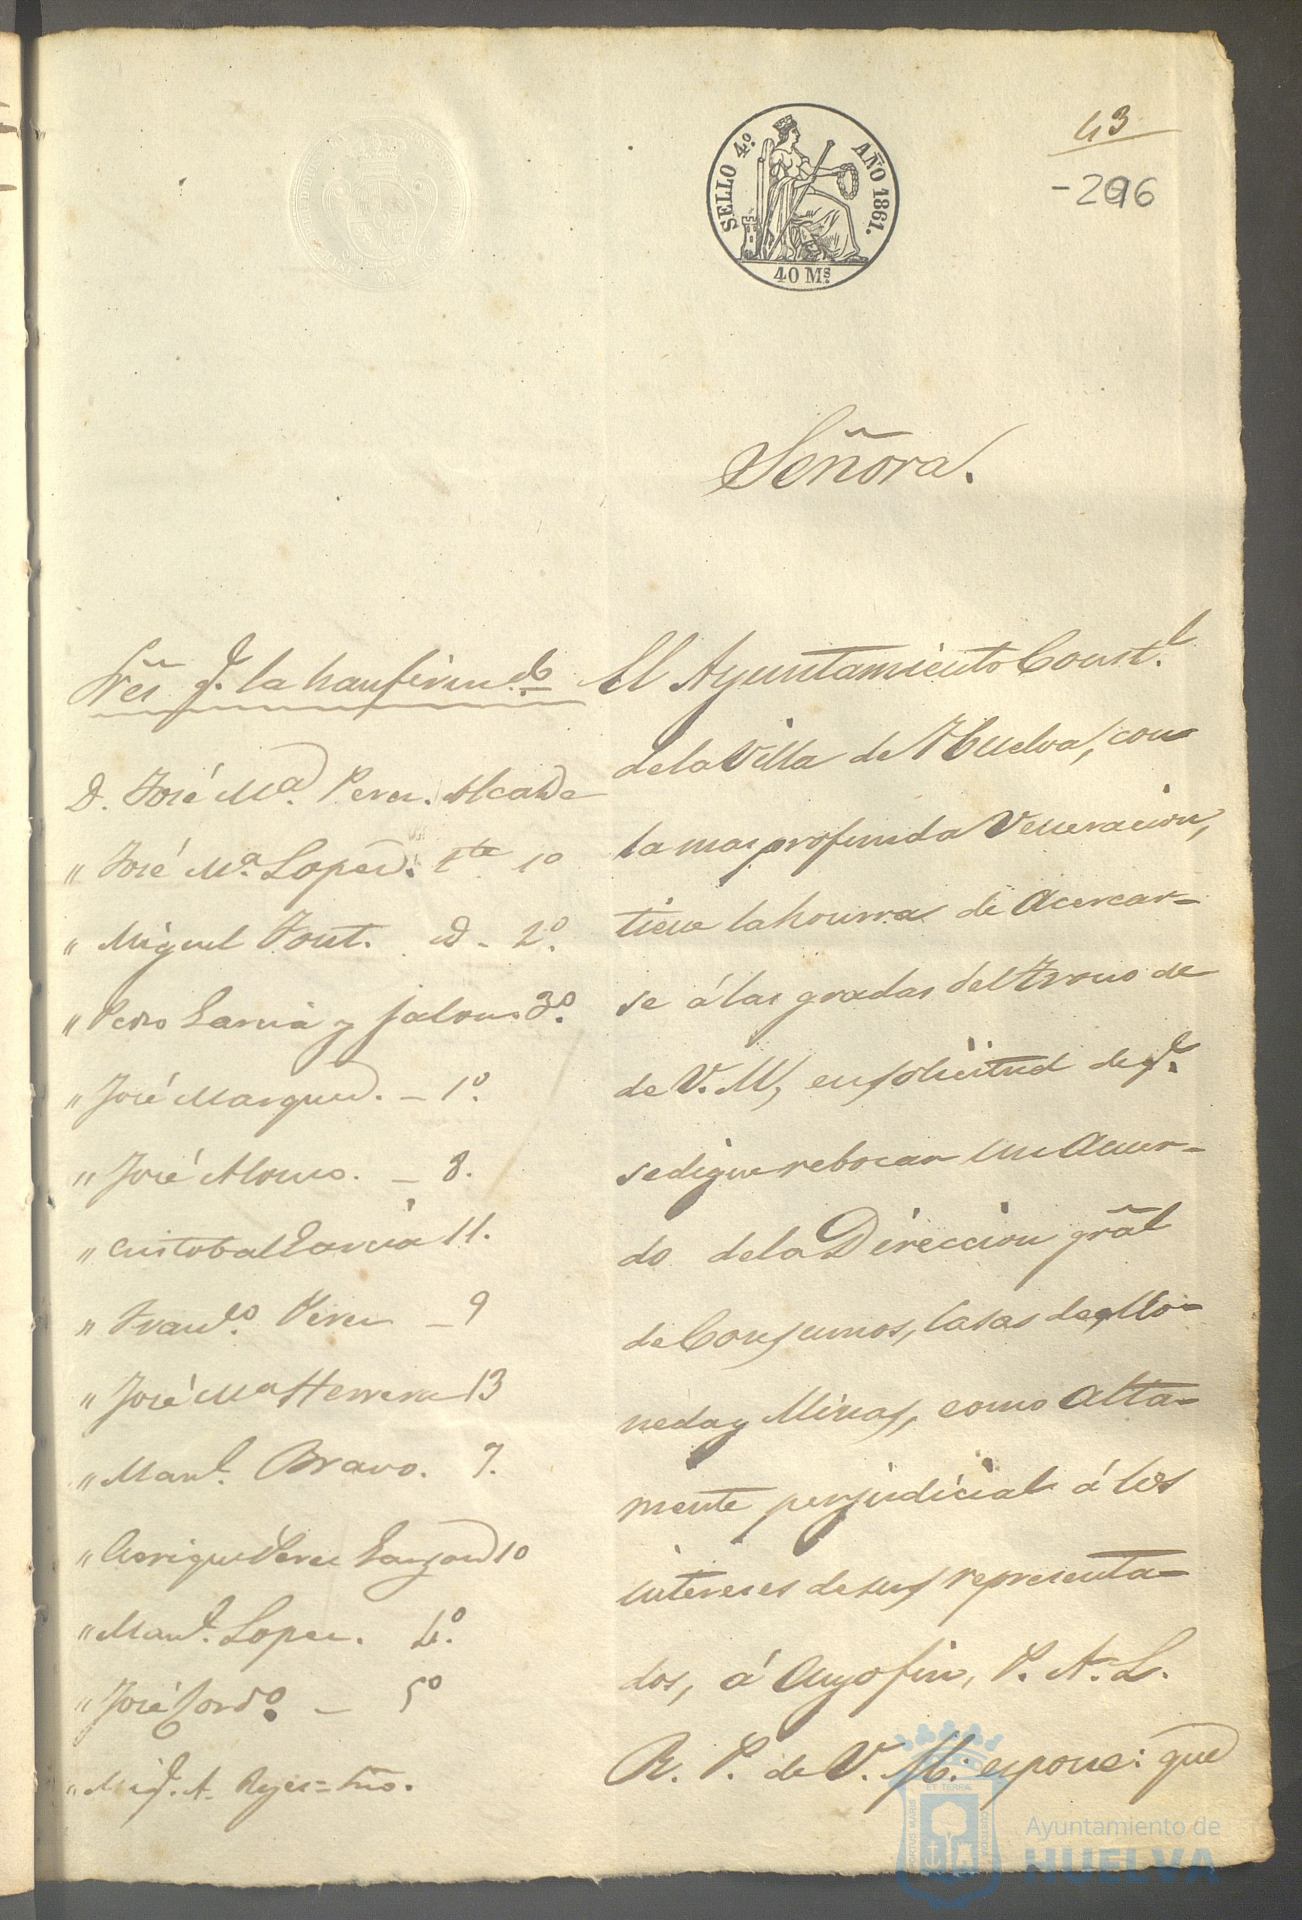 43
-296
SELLO 4.º AÑO 1861.
40 Ms.
Señora.
Sres q.e la han firmdo
D. José Ma. Perez. Alcalde
" José Ma. Lopez. Tte 1º
" Miguel Font. D - 2º.
" Pedro Garcia y Jalons 3º.
" José Marquez. - 1º.
" José Alonso. - 8.
" Cristobal Garcia 11.
" Franco. Perez - 9
" José Ma Herrera 13
" Manl. Bravo. 7.
" Enrique Perez 10
" Manl. Lopez. 4º.
" José Cordo. - 5º
" Migl. A. Reyes = Srio.
El Ayuntamiento Constl.
de la Villa de Huelva, con
la mas profunda Veneracion,
tiene la honrra de Acercar-
se á las gradas del Trono de
de V. M, en solicitud de q.e
se digne rebocar un Acuer-
do de la Direccion gral
de Consumos, Casas de Mo-
neda y Minas, como alta-
mente perjudicial á los
intereses de sus representa-
dos, á cuyo fin, P. A. L.
R. P. de V. M. espone: que
ET TERRÆ
PORTUS MARIS
CUSTODIA
Ayuntamiento de
HUELVA